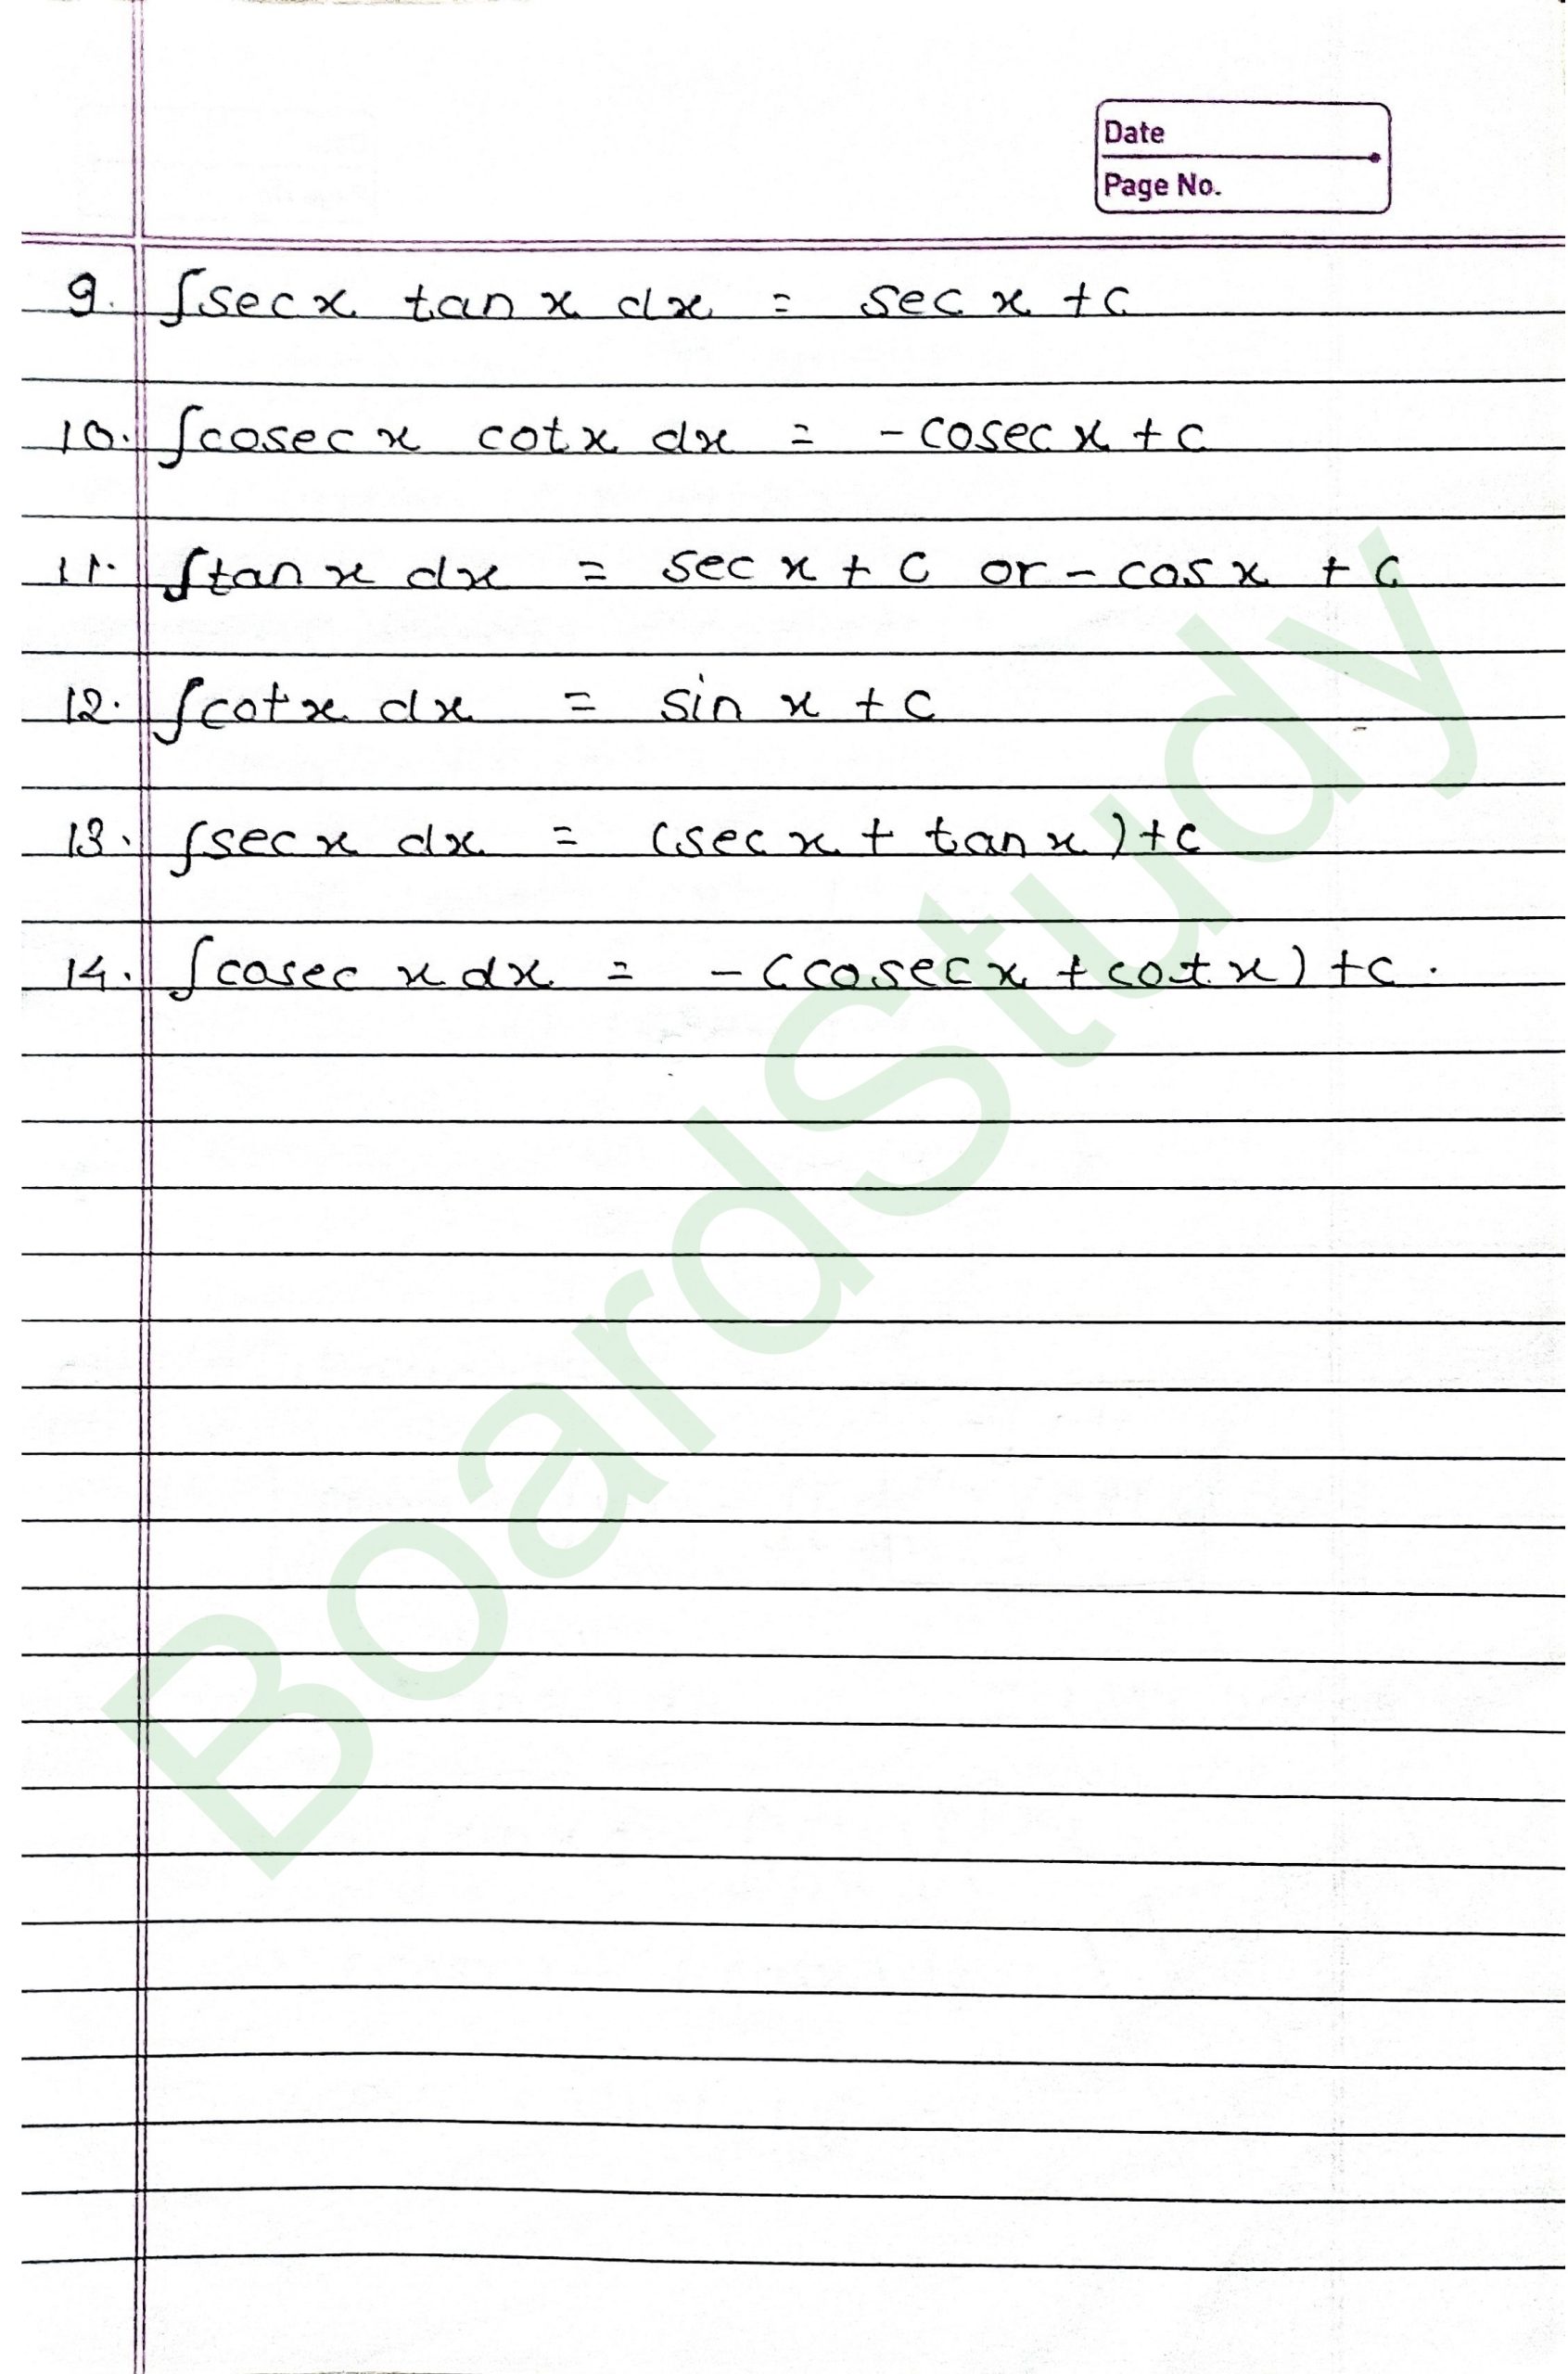 Date
Page No.
9. ∫sec x tan x dx = sec x + c
10. ∫cosec x cot x dx = - cosec x + c
11. ∫tan x dx = sec x + c or - cos x + c
12. ∫cot x dx = sin x + c
13. ∫sec x dx = (sec x + tan x) + c
14. ∫cosec x dx = - (cosec x + cot x) + c .
BoardStudy